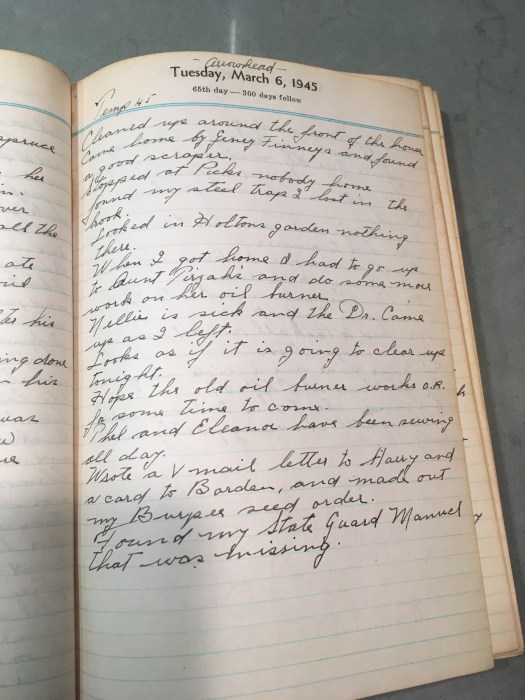 spruce
her
in.
over
all the
ate
oil
his
ing done
his
was
- Arrowhead -
Tuesday, March 6, 1945
65th day — 300 days follow
Temp 45
Cleaned up around the front of the house
Came home by Finneys and found
a good scraper.
Stopped at Picks nobody home
found my steel trap I lost in the
book.
Looked in Holtons garden nothing
there.
When I got home I had to go up
to Aunt Tirzah's and do some more
work on her oil burner.
Nellie is sick and the Dr. Came
up as I left.
Looks as if it is going to clear up
tonight.
Hope the old oil burner works O.K.
for some time to come.
Phel and Eleanor have been sewing
all day.
Wrote a V mail letter to Harry and
a card to Barden, and made out
my Burpee seed order.
Found my State Guard Manuel
that was missing.